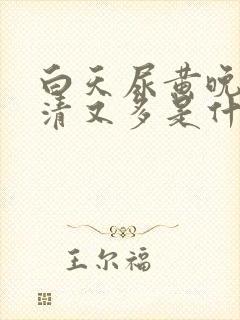 白天尿黄晚
清又多是什
王尔福